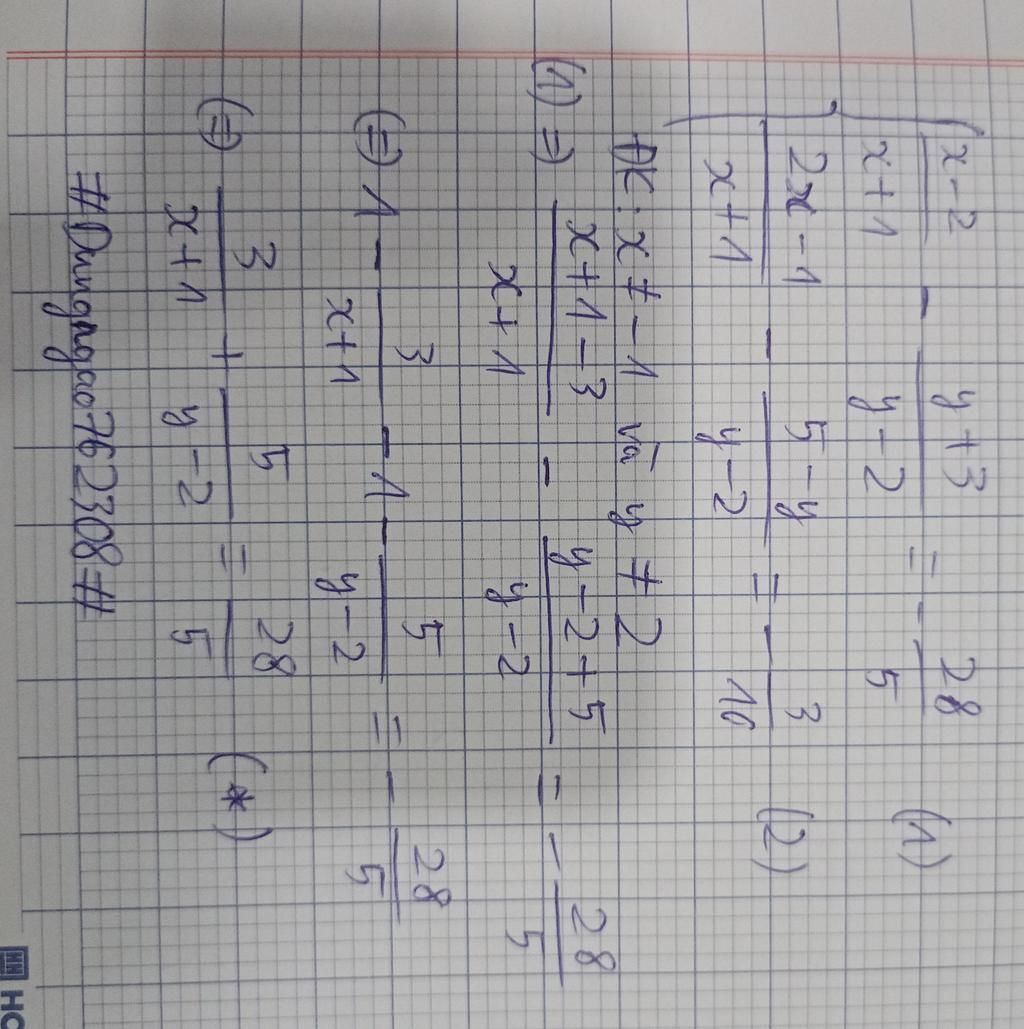 { (x-2)/(x+1) - (y+3)/(y-2) = -28/5 (1)
(2x-1)/(x+1) - (5-y)/(y-2) = -3/10 (2)
ĐK: x ≠ -1 và y ≠ 2
(1) => (x+1-3)/(x+1) - (y-2+5)/(y-2) = -28/5
(=) 1 - 3/(x+1) - 1 - 5/(y-2) = -28/5
(=) 3/(x+1) + 5/(y-2) = 28/5 (*)